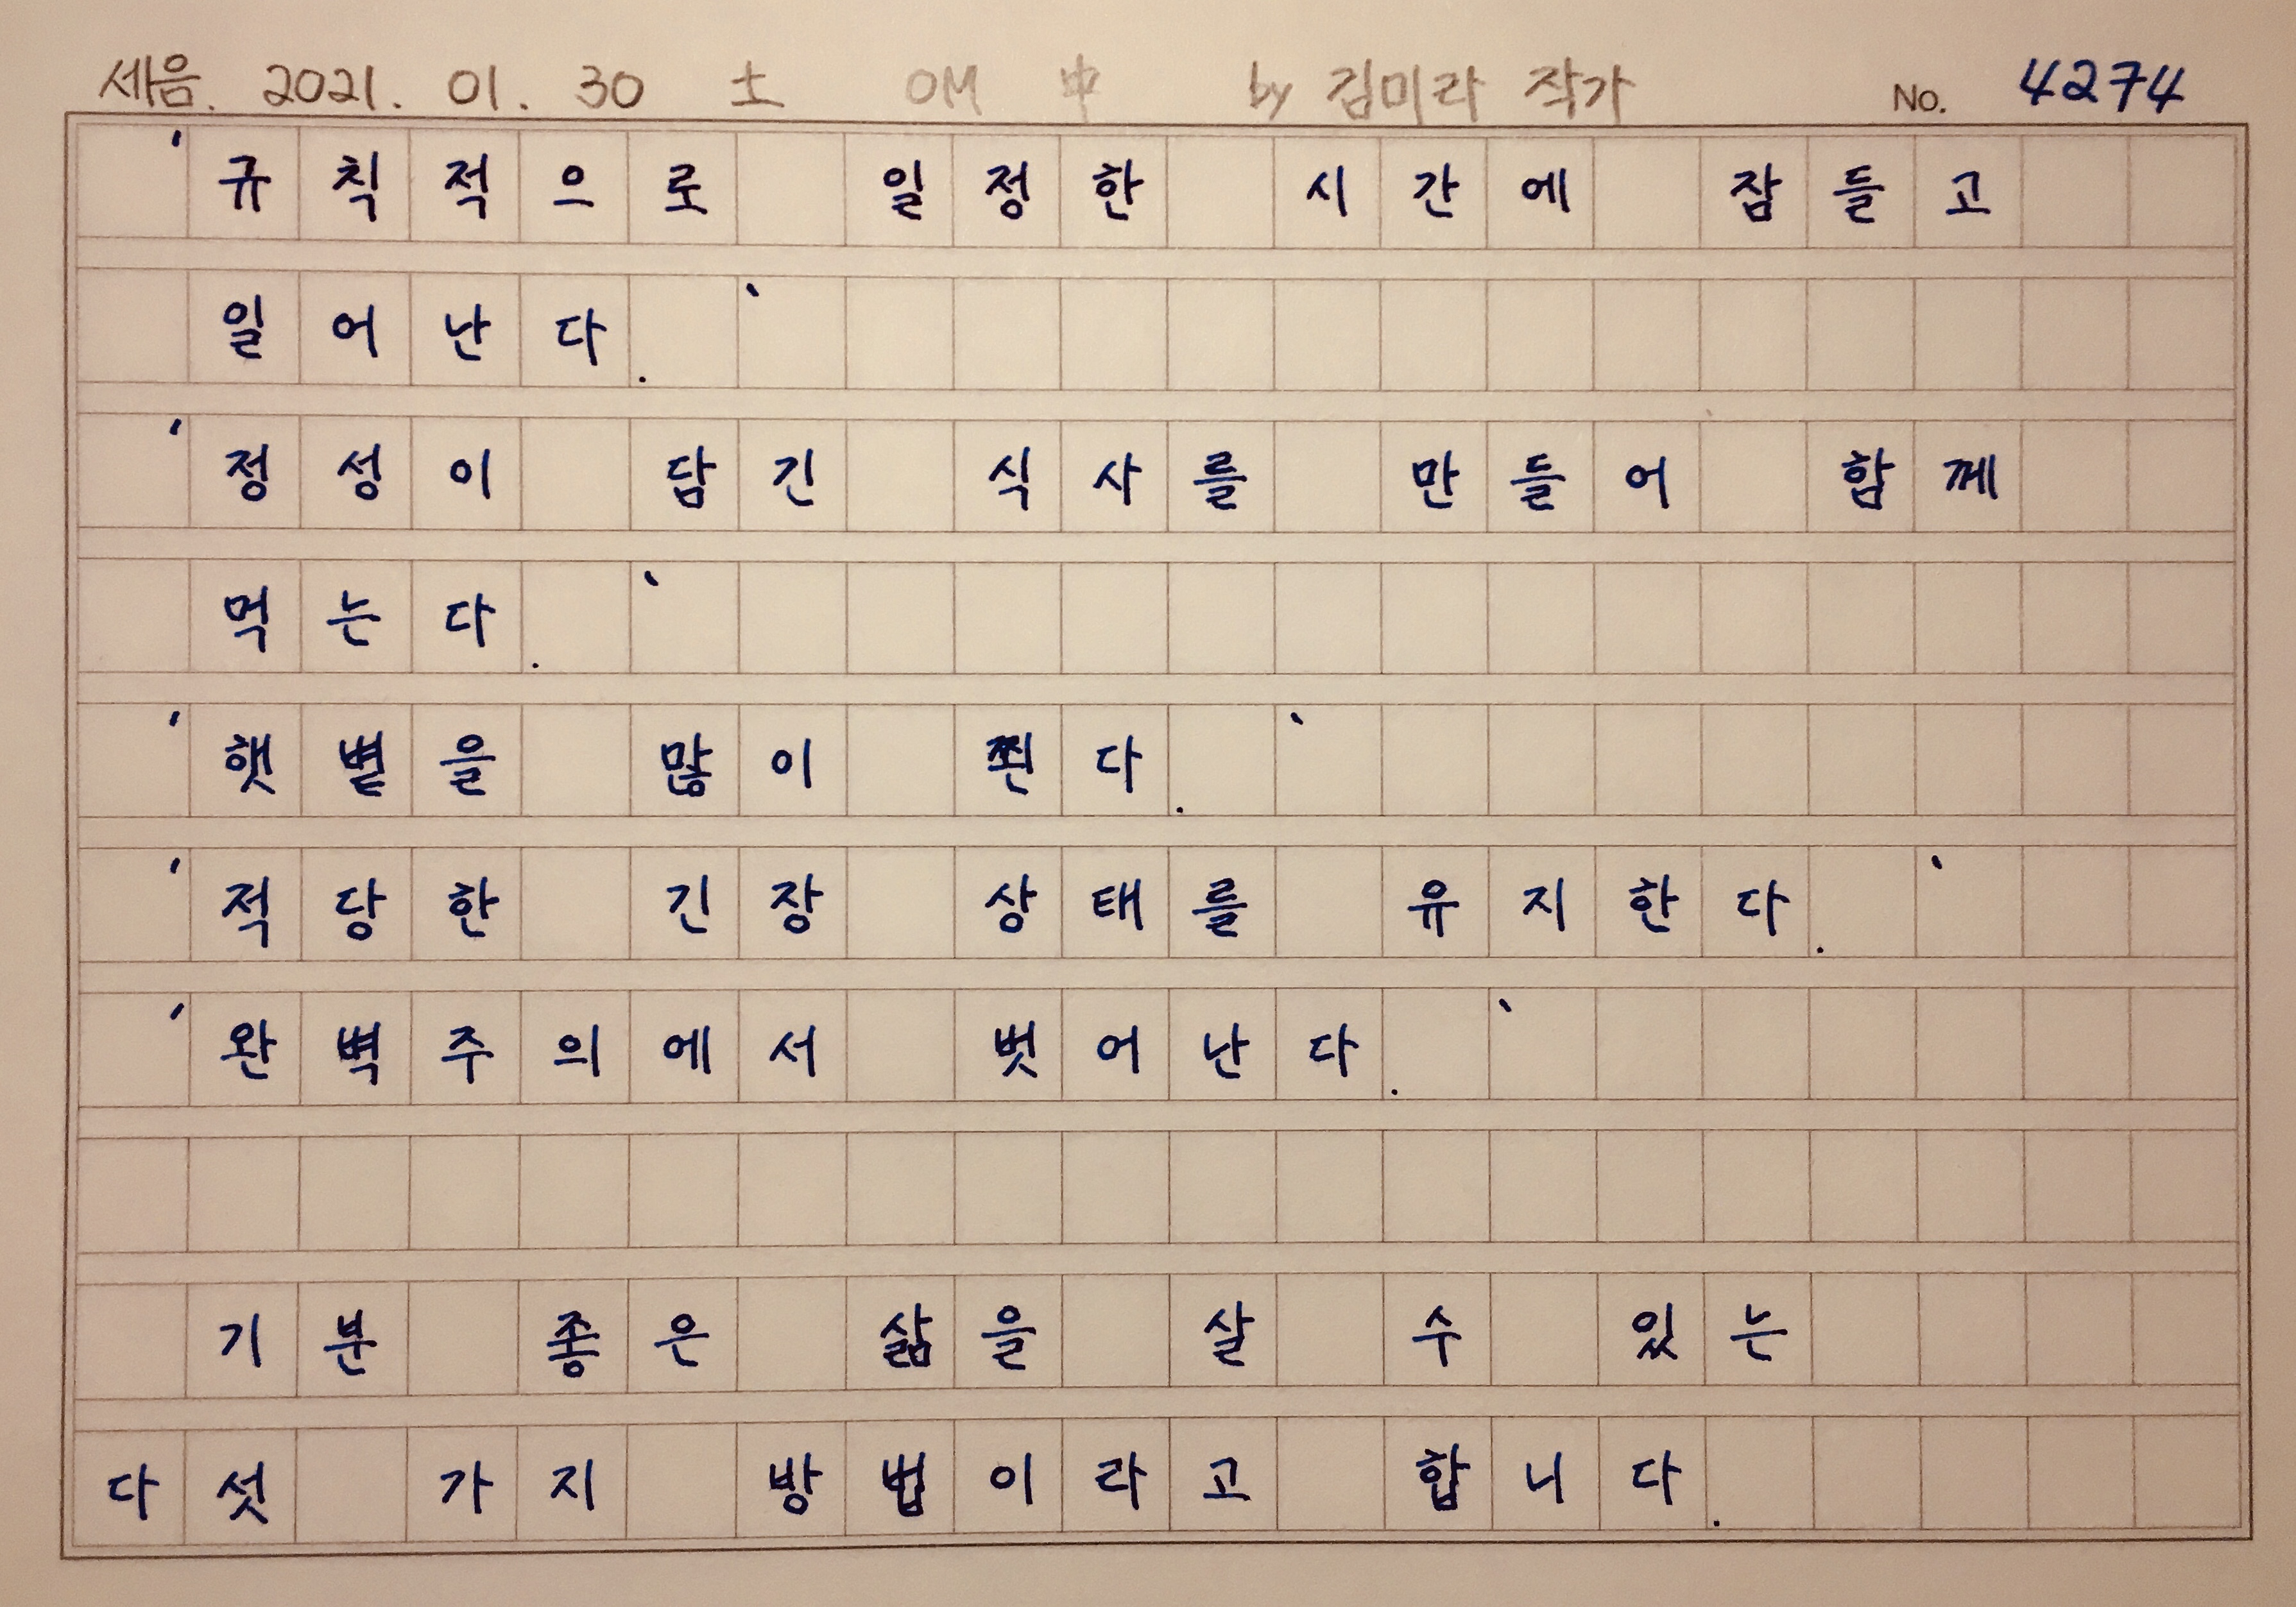 세음. 2021. 01. 30 土 OM 中 by 김미라 작가 No. 4274
'규칙적으로 일정한 시간에 잠들고
일어난다.'
'정성이 담긴 식사를 만들어 함께
먹는다.'
'햇볕을 많이 쬔다.'
'적당한 긴장 상태를 유지한다.'
'완벽주의에서 벗어난다.'
기분 좋은 삶을 살 수 있는
다섯 가지 방법이라고 합니다.